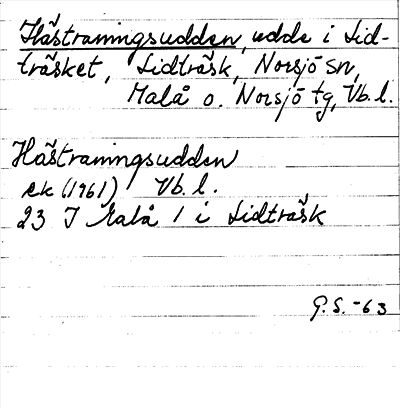 Hästraningsudden, udde i Lid-
träsket, Lidträsk, Norsjö sn,
Malå o. Norsjö tg, Vb. l.
Hästraningsudden
ek (1961) Vb. l.
23 J Malå / i Lidträsk
G.S. -63